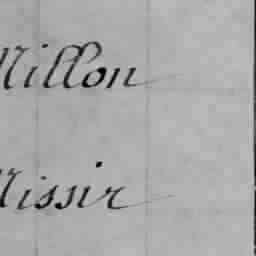 Millon
Missir